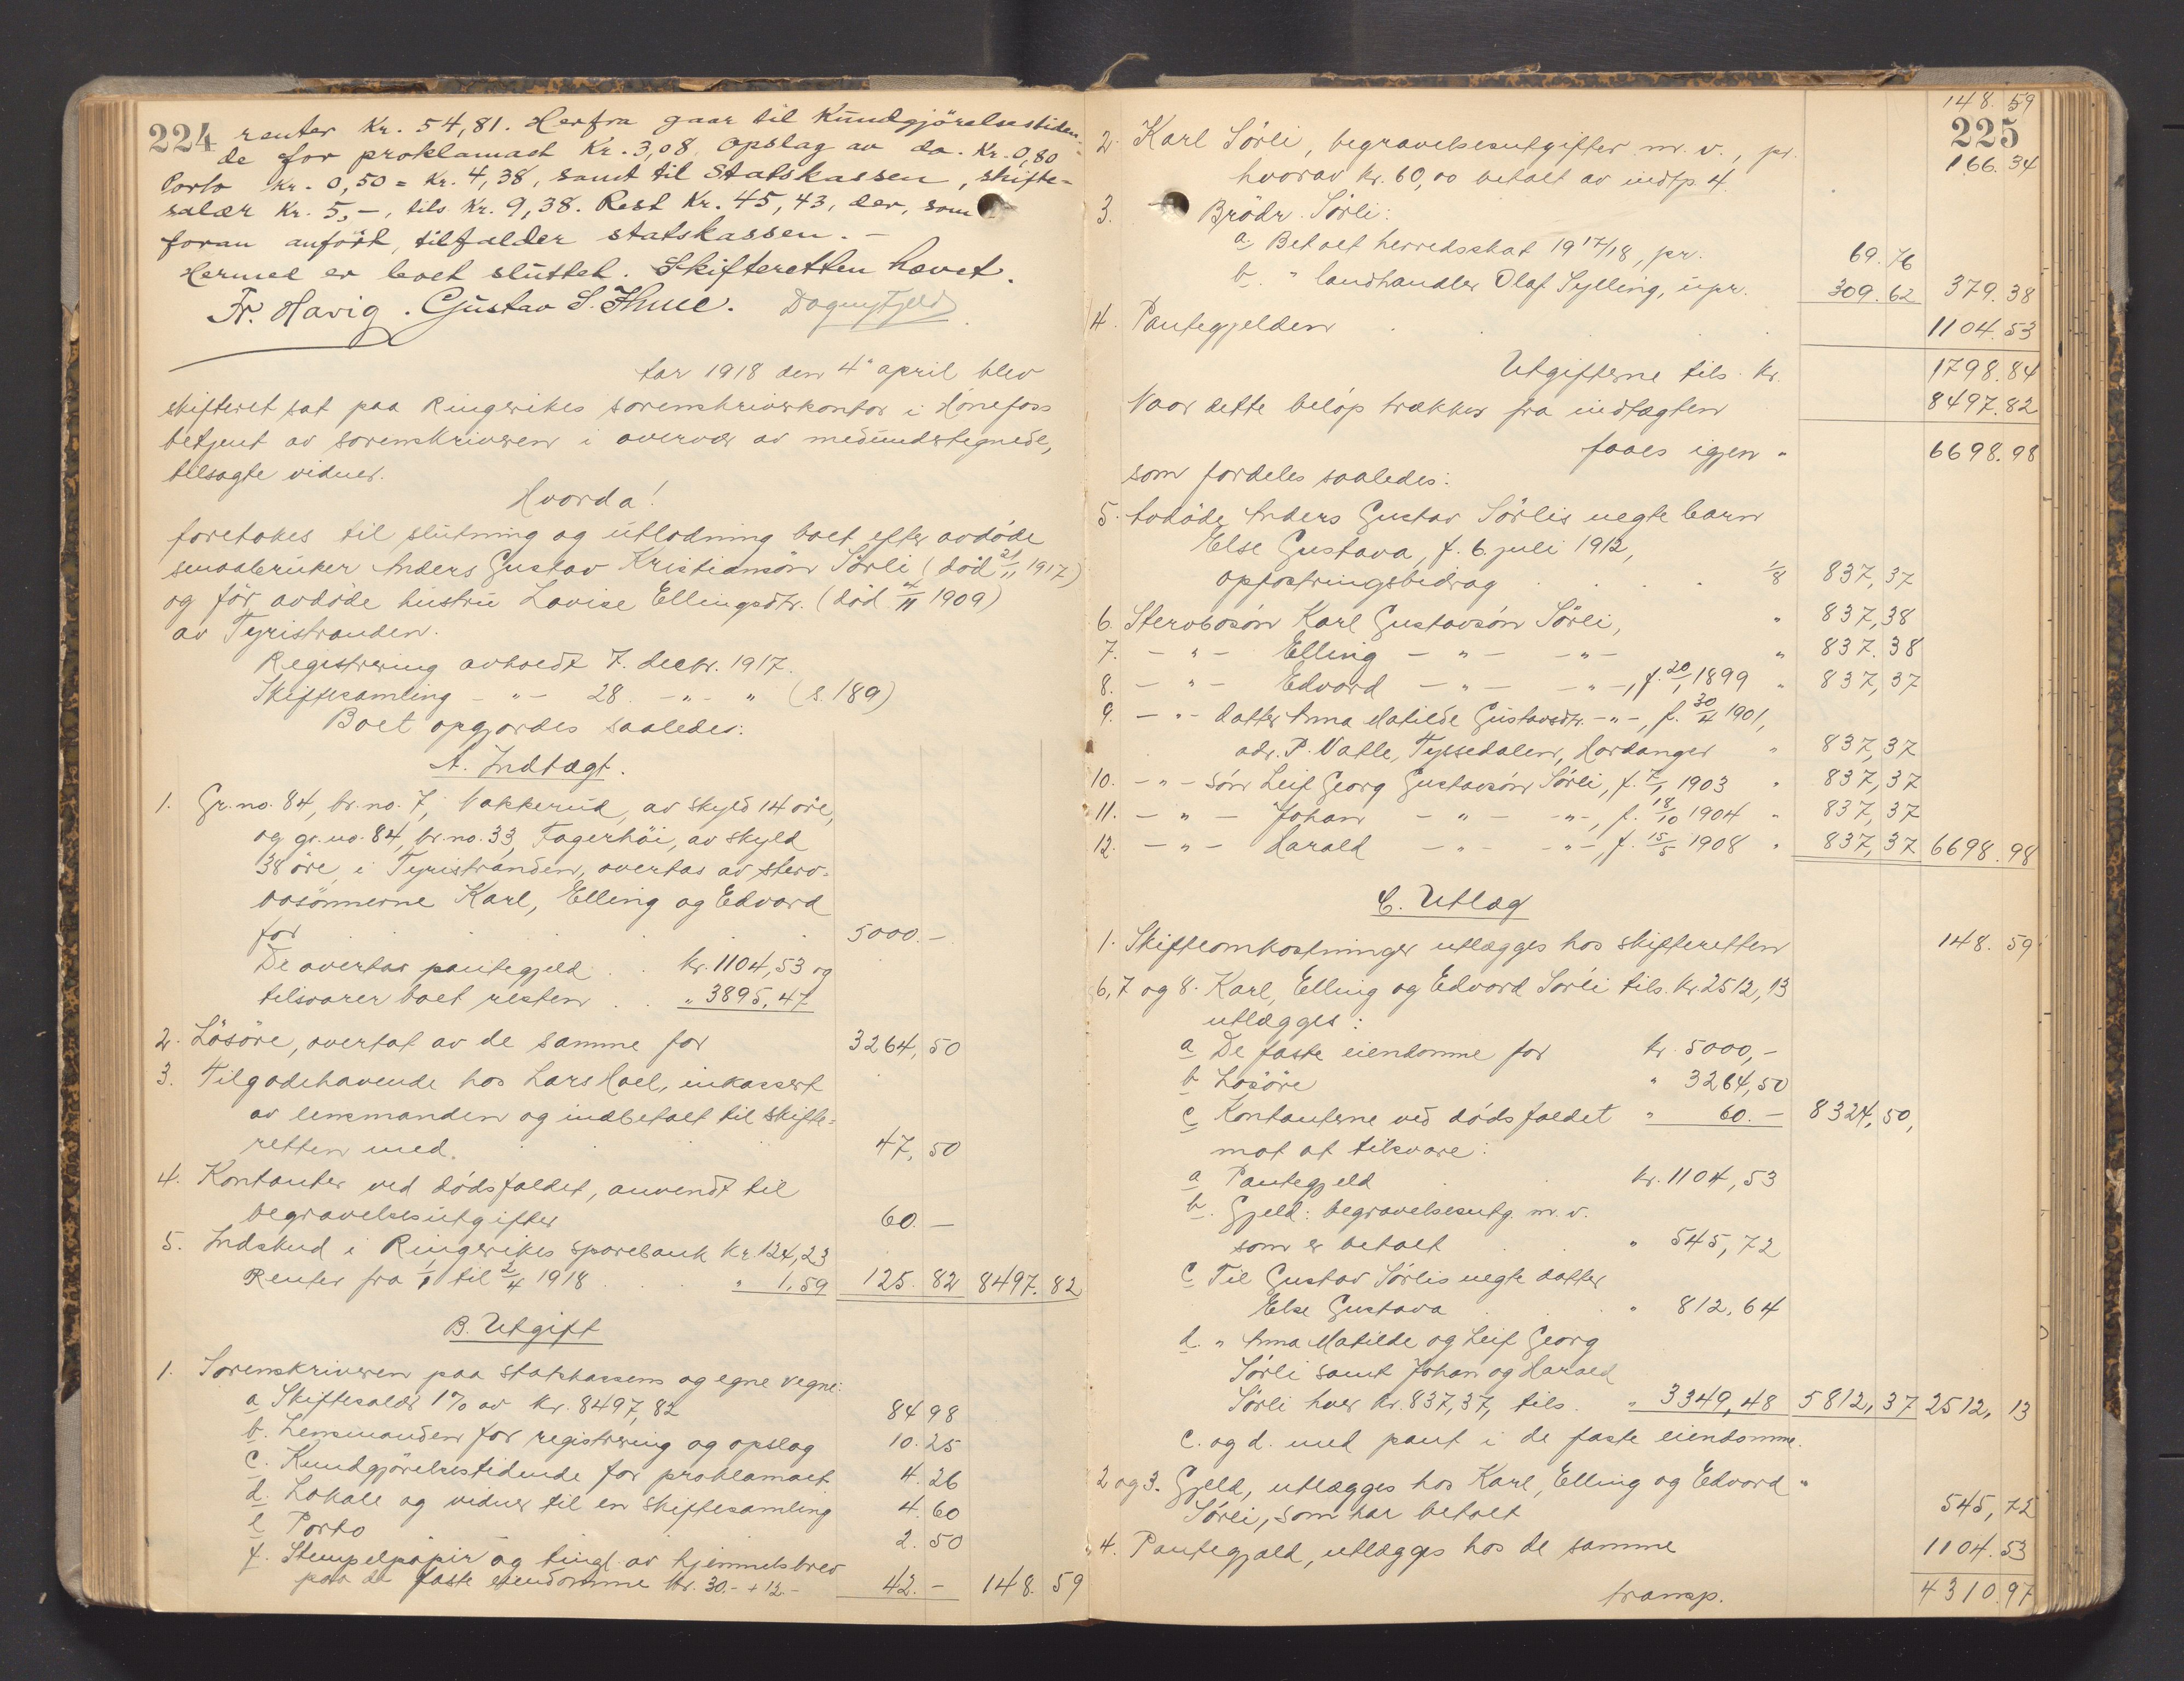 224 renter Kr. 54,81. Herfra gaar til Kundgjörelsestiden-
de for proklamaet Kr. 3,08. Opslag av do. Kr. 0,80
Porto Kr. 0,50 = Kr. 4,38, samt til Statskassen, skifte-
salær Kr. 5,-, tils. Kr. 9,38. Rest Kr. 45,43, der, som
foran anfört, tilfalder statskassen. -
Hermed er boet sluttet. Skifteretten hævet.
Fr. Havig. Gustav S. Thue. Dagny Fjeld
Aar 1918 den 4' april blev
skifteret sat paa Ringerikes sorenskriverkontor i Hönefoss
betjent av sorenskriveren i overvær av medundertegnede,
tilsagte vidner.
Hvorda!
foretokes til slutning og utlodning boet efter avdöde
smaabruker Anders Gustav Kristiansön Sörli (död 21/11 1917)
og för avdöde hustru Lovise Ellingsdtr. (död 4/11 1909)
av Tyristranden.
Registrering avholdt 7. decbr. 1917.
Skiftesamling - " - 28 - " - " (s. 189)
Boet opgjordes saaledes:
A. Indtægt.
1. Gr.no. 84, br.no. 7, Nakkerud, av skyld 14 öre,
og gr.no. 84, br.no. 33, Fagerhöi, av skyld
38 öre, i Tyristranden, overtas av sterv-
bosönnerne Karl, Elling og Edvard
for 5000.-
De overtar pantegjeld kr. 1104,53 og
tilsvarer boet resten " 3895,47
2. Lösöre, overtat av de samme for 3264,50
3. Tilgodehavende hos Lars Hoel, inkassert
av lensmanden og indbetalt til skifte-
retten med. 47,50
4. Kontanter ved dödsfaldet, anvendt til
begravelsesutgifter 60.-
5. Indskud i Ringerikes sparebank Kr 124,23
Renter fra 1/1 til 2/4 1918 " 1,59 125.82 8497.82
B. Utgift
1. Sorenskriveren paa statskassens og egne vegne:
a Skiftesalær 1% av kr. 8497,82 84 98
b. Lensmanden for registrering og opslag 10.25
c. Kundgjörelsestidende for proklamaet 4.26
d. Lokale og vidner til en skiftesamling 4.60
e Porto 2.50
f. Stempelpapir og tingl. av hjemmelsbrev
paa de faste eiendomme kr. 30.- + 12.- 42.- 148.59
148.59
225
2. Karl Sörli, begravelsesutgifter m.v., pr. 166.34
hvorav kr. 60,00 betalt av indtp. 4.
3. Brödr. Sörli:
a. Betalt herredsskat 1917/18, pr. 69.76
b. " landhandler Olaf Sylling, upr. 309.62 379.38
4. Pantegjelden 1104.53
Utgifterne tils. kr. 1798.84
Naar dette belöp trækkes fra indtægten 8497.82
faaes igjen " 6698.98
som fordeles saaledes:
5. Avdöde Anders Gustav Sörlis uegte barn
Else Gustava, f. 6. juli 1912,
opfostringsbidrag 1/8 837,37
6. Stervbosön Karl Gustavsön Sörli, " 837,38
7. - " - Elling - " - - " - " 837.38
8. - " - Edvard - " - - " -, f. 20/1 1899 " 837,37
9. - " - datter Anna Matilde Gustavsdtr. - " -, f. 30/4 1901,
adr. P. Vatle, Tyssedalen, Hardanger " 837,37
10. - " - sön Leif Georg Gustavsön Sörli, f. 7/1 1903 " 837,37
11. - " - Johan - " - - " -, f. 18/10 1904 " 837,37
12. - " - Harald - " - - " -, f. 15/5 1908 " 837,37 6698.98
C. Utlæg
1. Skifteomkostninger utlægges hos skifteretten 148.59
6, 7 og 8. Karl, Elling og Edvard Sörli tils. kr. 2512,13
utlægges:
a De faste eiendomme for kr. 5000,-
b Lösöre " 3264,50
c Kontanterne ved dödsfaldet " 60.- 8324,50,
mot at tilsvare:
a Pantegjeld kr. 1104,53
b. Gjeld: begravelsesutg. m.v.
som er betalt " 545,72
c Til Gustav Sörlis uegte datter
Else Gustava " 812,64
d. " Anna Matilde og Leif Georg
Sörli samt Johan og Harald
Sörli hver kr. 837,37, tils. " 3349,48 5812,37 2512,13
c. og d. med pant i de faste eiendomme.
2 og 3. Gjeld, utlægges hos Karl, Elling og Edvard "
Sörli, som har betalt 545,72
4. Pantegjæld, utlægges hos de samme 1104.53
transp. 4310.97